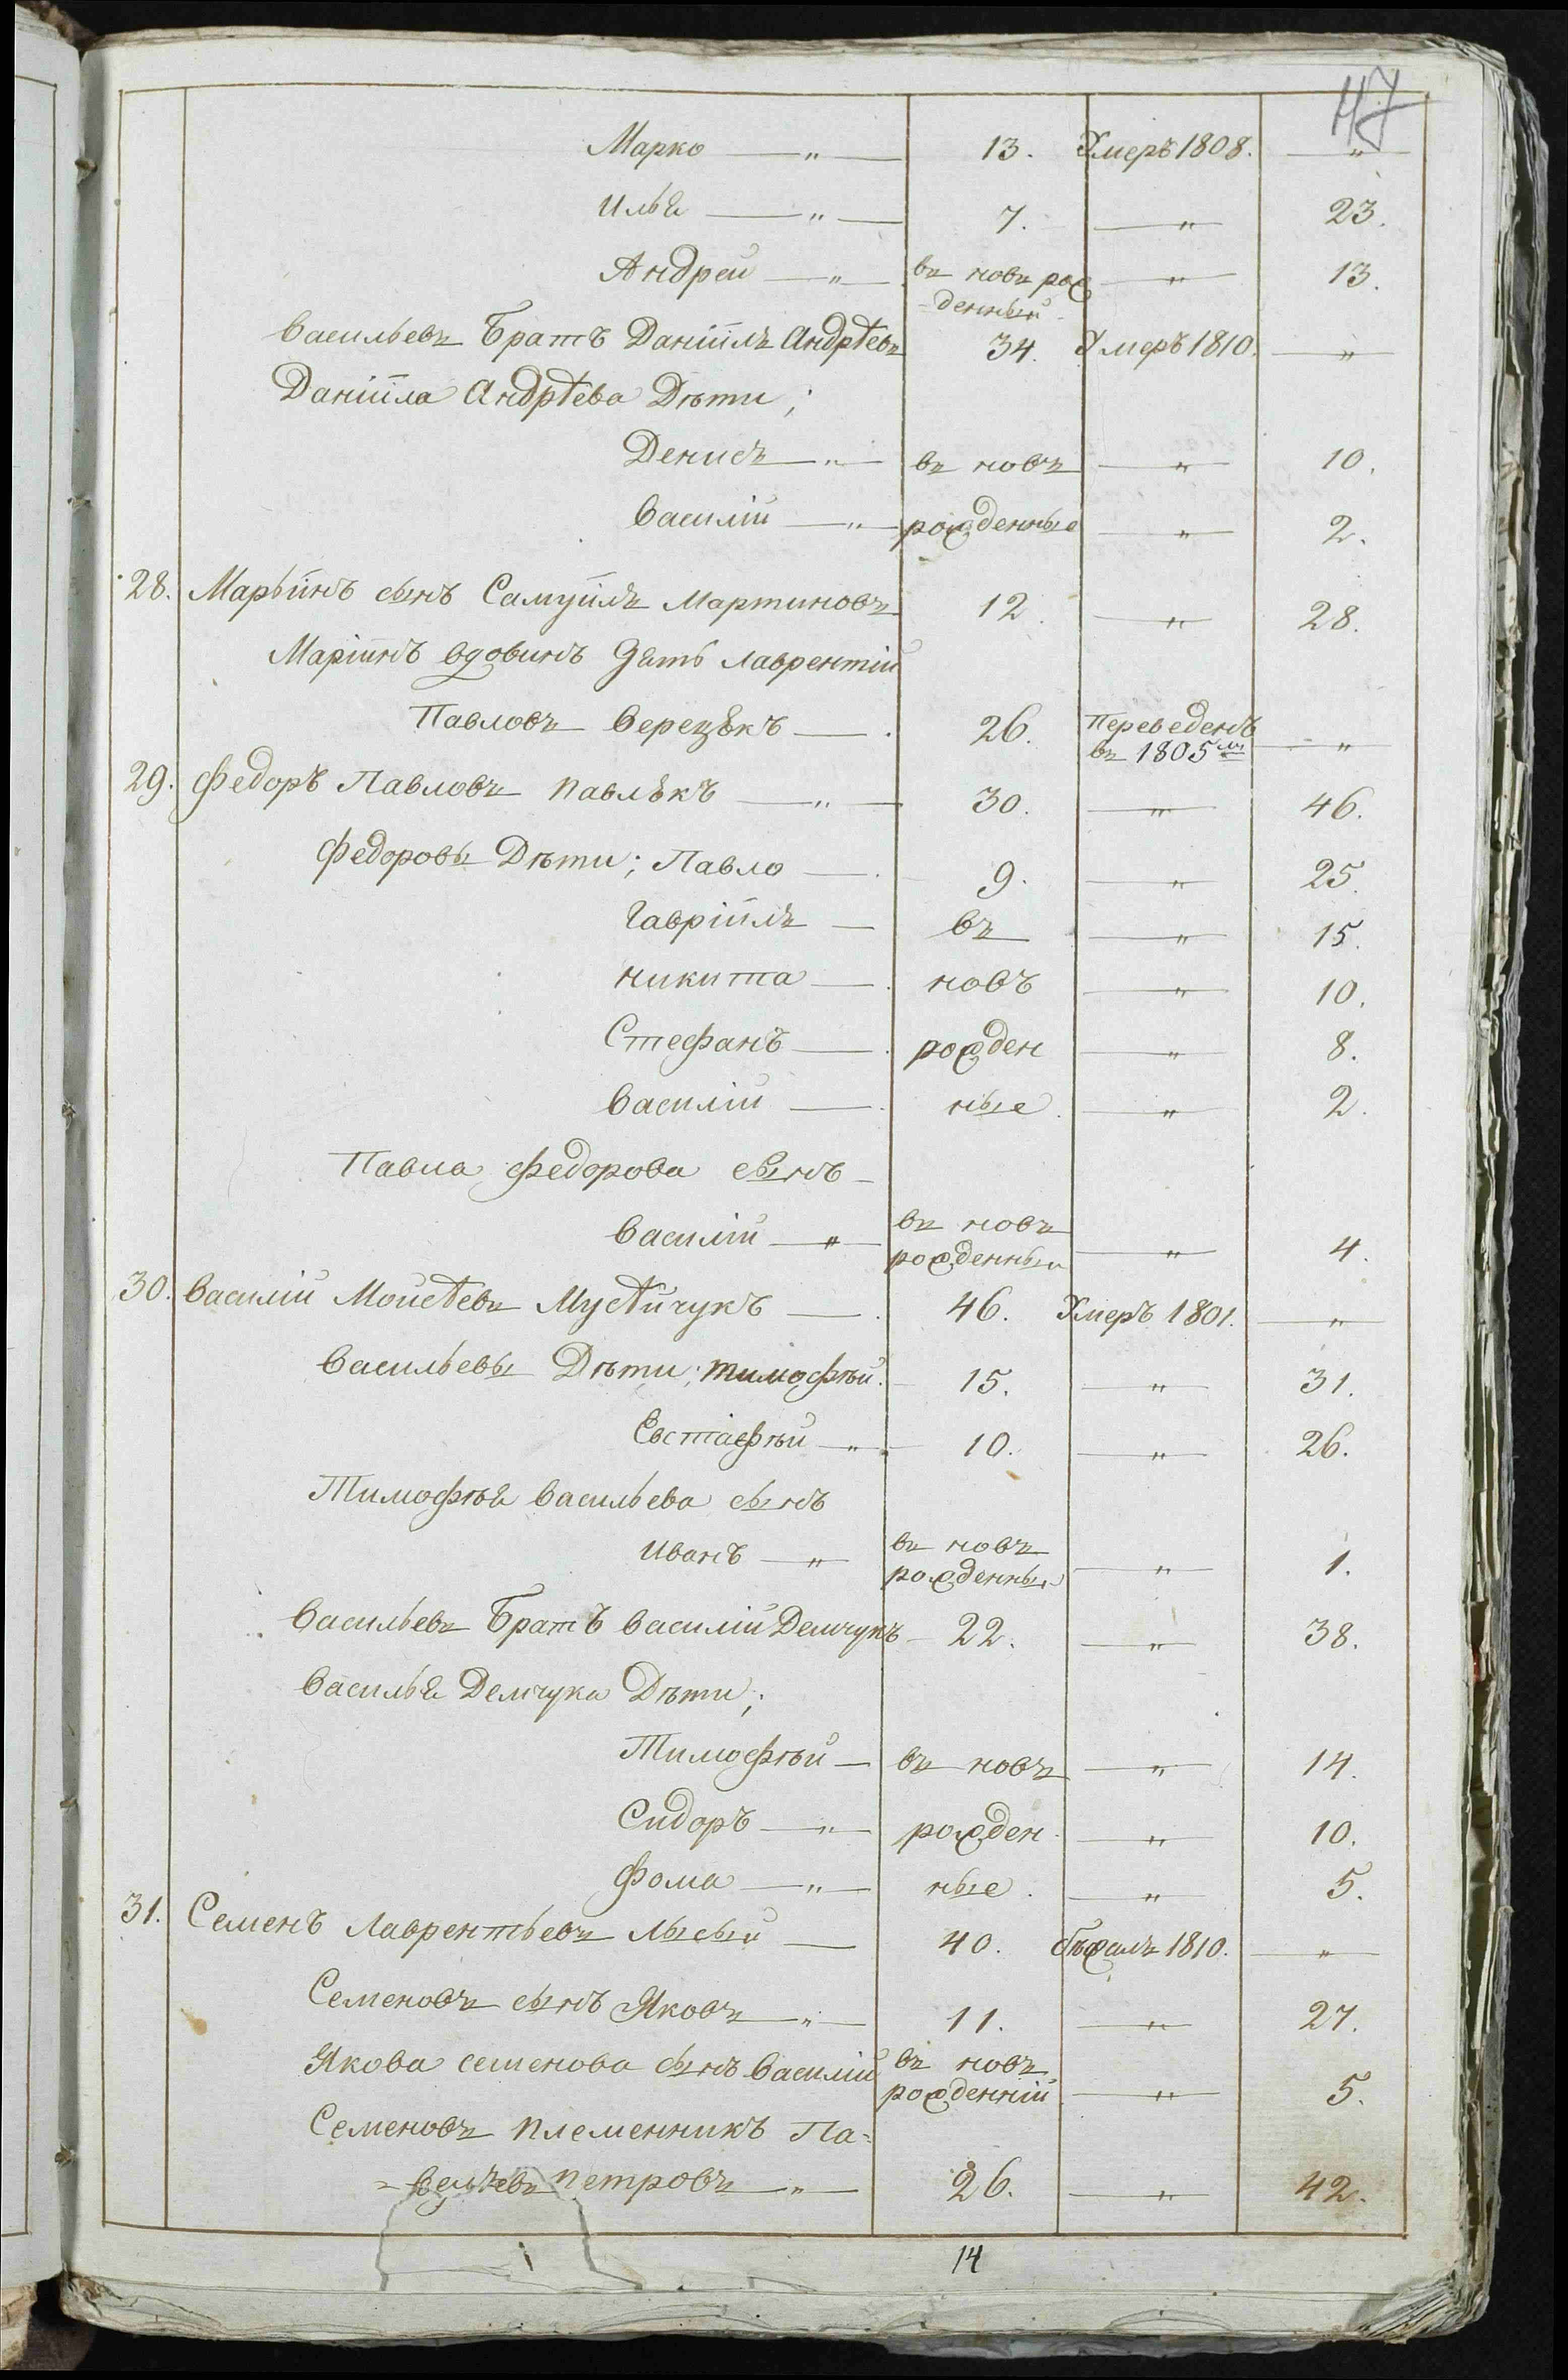 47
Марко — „ — 13. Умеръ 1808. — „ —
Илья — „ — 7. — „ — 23.
Андрей — „ — въ новъ рож — „ — 13.
-денный
Васильевъ Братъ Даніилъ Андрѣевъ 34. Умеръ 1810. — „ —
Даніила Андрѣева Дѣти;
Денисъ — „ — въ новъ — „ — 10.
Василій — „ — рожденные — „ — 2.
28. Марьинъ сынъ Самуилъ Мартиновъ 12. — „ — 28.
Маріинъ вдовинъ зять Лаврентій
Павловъ — 26. Переведенъ — „ —
въ 1805м
29. Федоръ Павловъ Павлюкъ — „ — 30. — „ — 46.
Федоровы Дѣти; Павло — 9. — „ — 25.
Гавріилъ — въ — „ — 15.
Никита — новъ — „ — 10.
Стефанъ — рожден — „ — 8.
Василій — ные — „ — 2.
Павла Федорова сынъ —
Василій — „ — въ новъ — „ — 4.
рожденный
30. Василій Мойсѣевъ Мусѣйчукъ — 46. Умеръ 1801. — „ —
Васильевы Дѣти; Тимофѣй. 15. — „ — 31.
Евстафѣй — „ — 10. — „ — 26.
Тимофѣя Васильева сынъ
Иванъ — „ — въ новъ — „ — 1.
рожденный
Васильевъ Братъ Василій Демчукъ — 22. — „ — 38.
Василья Демчука Дѣти;
Тимофѣй — въ новъ — „ — 14.
Сидоръ — „ — рожден — „ — 10.
Фома — „ — ные. — „ — 5.
31. Семенъ Лаврентьевъ Лысый — 40. бѣжалъ 1810. — „ —
Семеновъ сынъ Яковъ — „ — 11. — „ — 27.
Якова Семенова сынъ Василій въ новъ — „ — 5.
рожденній
Семеновъ племенникъ Па=
Петровъ — „ — 26. — „ — 42.
14